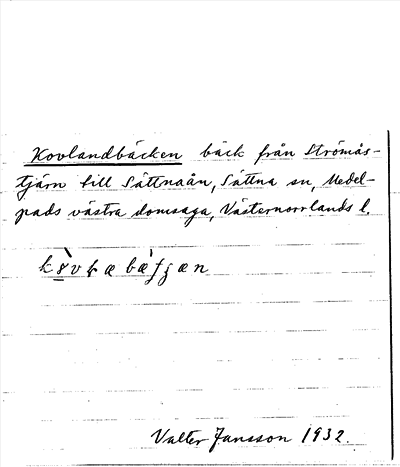 Kovlandbäcken bäck från Strömås-
tjärn till Sättnaån, Sättna sn, Medel-
pads västra domsaga, Västernorrlands l.
Valter Jansson 1932.